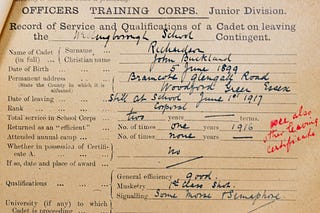 OFFICERS TRAINING CORPS. Junior Division.
Record of Service and Qualifications of a Cadet on leaving
the Wellingborough School Contingent.
Name of Cadet (in full) { Surname Richardson
Christian name John Buckland
Date of Birth 5 June 1899
Permanent address Glengall Road
(State the County in which it is situated) Woodford Green Essex
Date of leaving Still at School June 1st 1917
Rank Corporal
Total service in School Corps two years — terms.
Returned as an "efficient" No. of times one years 1916
Attended annual camp No. of times none years
see also other leaving certificate
Whether in possession of Certificate A. no
If so, date and place of award
Qualifications { General efficiency good.
Musketry 1st class shot.
Signalling Some morse & Semaphore
University (if any) to which
Cadet is proceeding